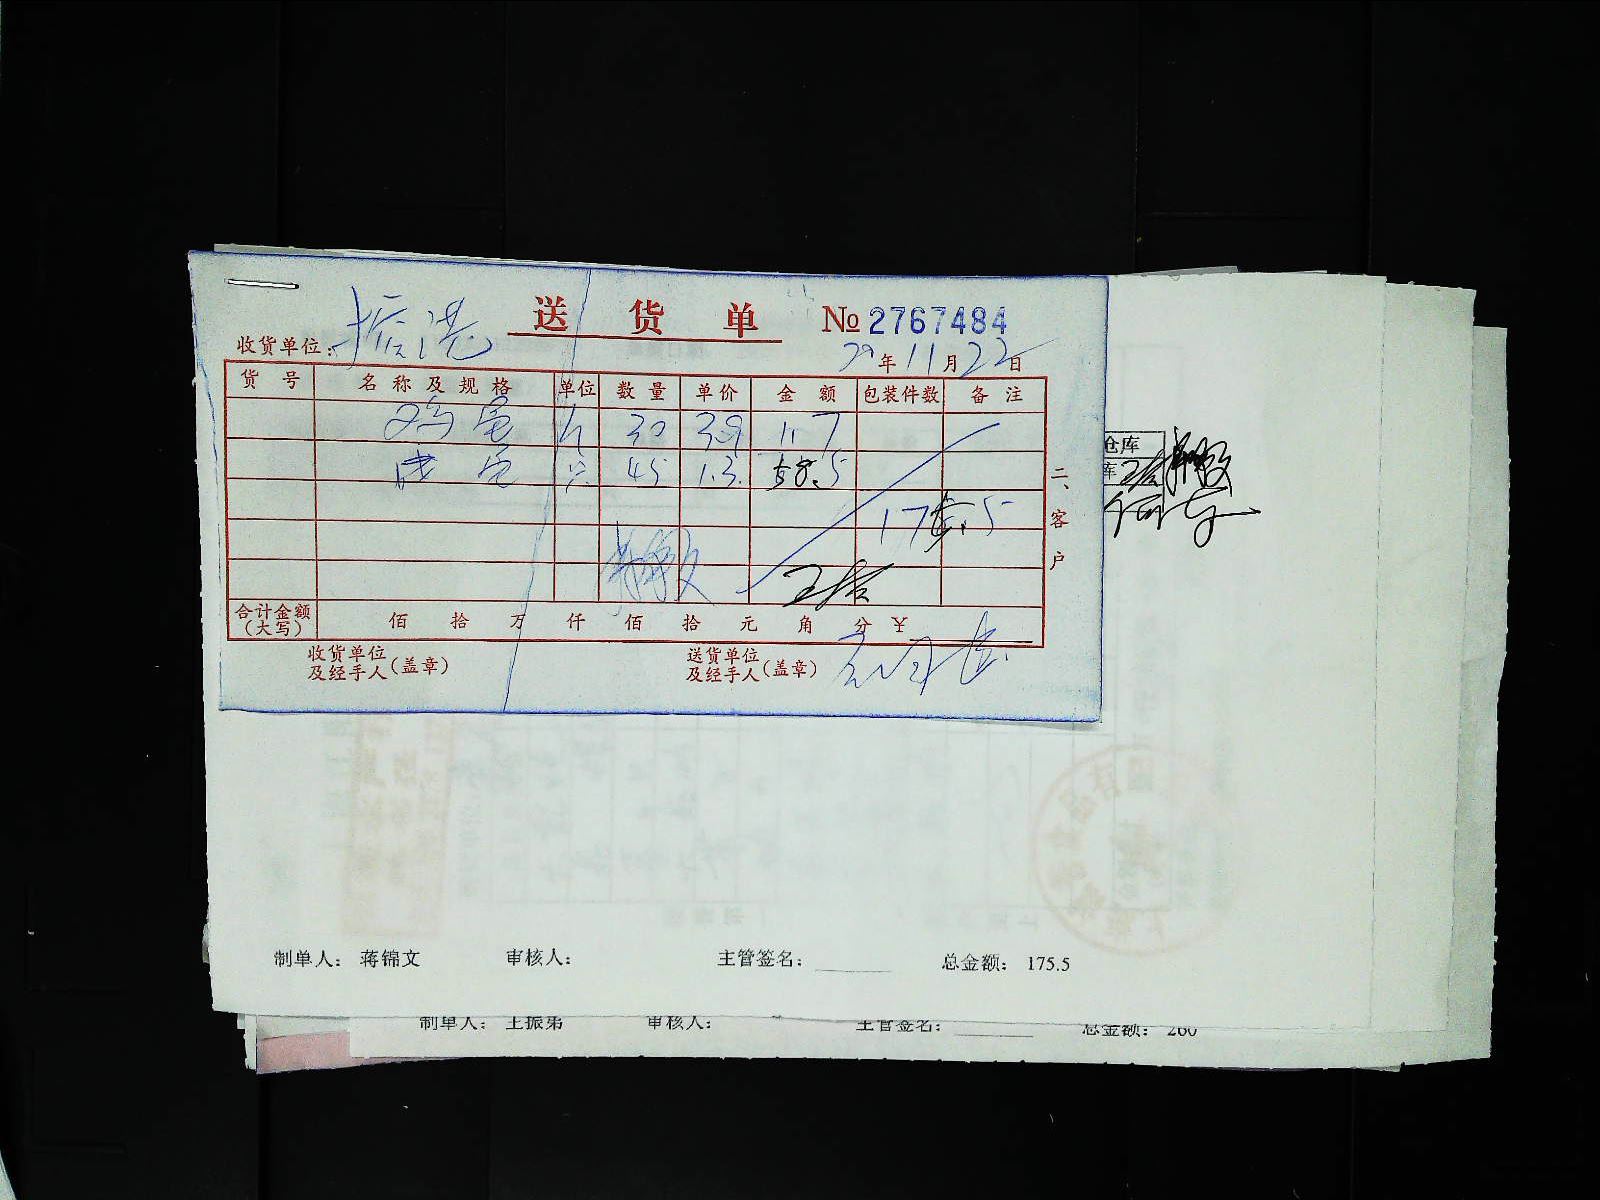 送 货 单 № 2767484
收货单位: 振港 年 11 月 22 日
货 号 名 称 及 规 格 单位 数 量 单价 金 额 包装件数 备 注
鸡蛋 斤 30 3.9 117
咸蛋 只 45 1.3 58.5
175.5
二、客户
合计金额(大写) 佰 拾 万 仟 佰 拾 元 角 分 ¥
收货单位及经手人(盖章) 送货单位及经手人(盖章)
仓库
库
制单人: 蒋锦文 审核人: 主管签名: 总金额: 175.5
制单人: 王振弟 审核人: 主管签名: 总金额: 260